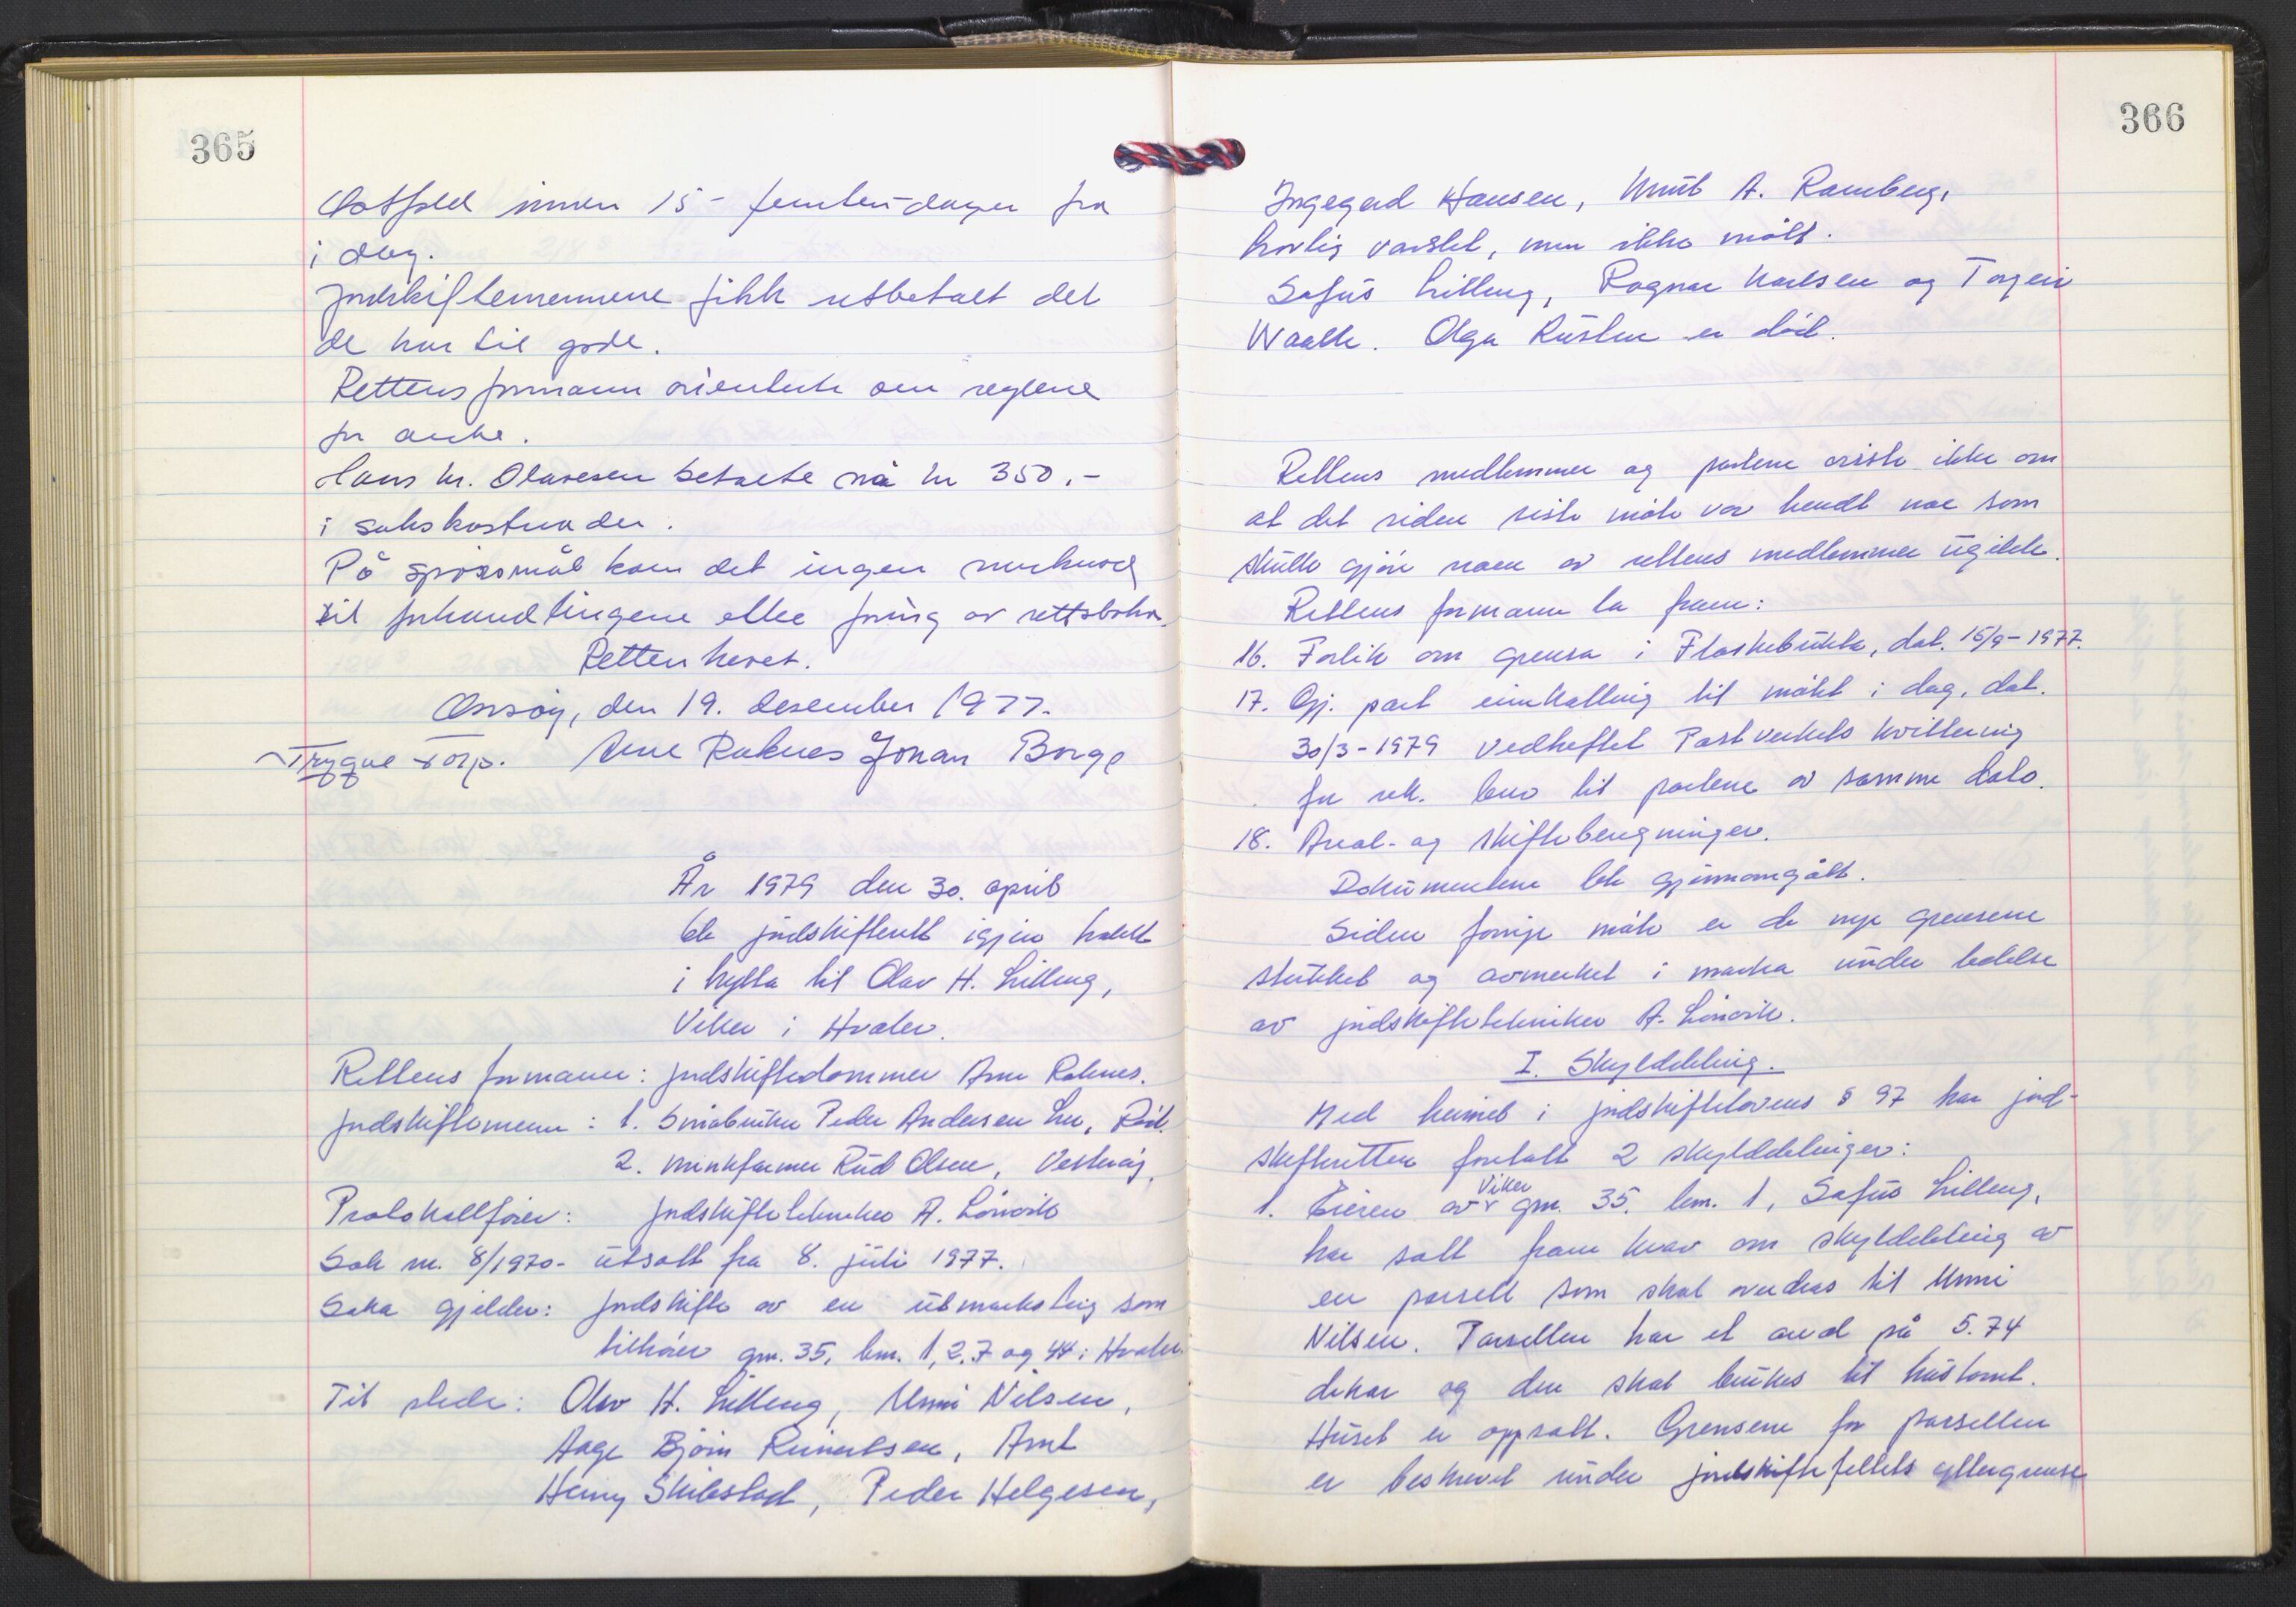 365
Østfold innen 15 - femten - dager fra
i dag.
Jordskiftemennene fikk utbetalt det
de har til gode.
Rettens formann orienterte om reglene
for anke.
Hans Kr. Olavesen betalte nå kr 350.-
i sakskostnader.
På spørsmål kom det ingen merknad
til forhandlingene eller føring av rettsboka.
Retten hevet.
Onsøy, den 19. desember 1977.
Trygve Torp. Arne Raknes Johan Borge
År 1979 den 30. april
ble jordskifterett igjen holdt
i hytta til Olav H. Lilleng,
Viker i Hvaler.
Rettens formann: Jordskiftedommer Arne Raknes.
Jordskiftemenn: 1. Småbruker Peder Andersen Lie, Råde.
2. Minkfarmer Rud Olsen, Vesterøy.
Protokollfører: Jordskiftetekniker A. Lønvik
Sak nr. 8/1970 - utsatt fra 8. juli 1977.
Saka gjelder: Jordskifte av en utmarksteig som
tilhører gnr. 35, bnr. 1, 2, 7 og 44 i Hvaler.
Til stede: Olav H. Lilleng, Unni Nilsen,
Aage Bjørn Reinertsen, Arnt
Henry Skibstad, Peder Helgesen,
366
Ingegerd Hansen, Knut A. Ramberg,
Lovlig varslet, men ikke møtt.
Sofus Lilleng, Ragnar Karlsen og Torgeir
Waalle. Olga Rusten er død.
Rettens medlemmer og partene visste ikke om
at det siden siste møte var hendt noe som
skulle gjøre noen av rettens medlemmer ugilde.
Rettens formann la fram:
16. Forlik om grensa i Flaskebukta, dat. 15/9-1977.
17. Gj. part innkalling til møtet i dag, dat.
30/3-1979 vedheftet Postverkets kvittering
for rek. brev til partene av samme dato.
18. Areal- og skifteberegninger.
Dokumentene ble gjennomgått.
Siden forrige møte er de nye grensene
stukket og avmerket i marka under ledelse
av jordskiftetekniker A. Lønvik.
I. Skylddeling.
Med heimel i jordskiftelovens § 97 har jord-
skifteretten foretatt 2 skylddelinger:
1. Eieren av Viker gnr. 35. bnr. 1, Sofus Lilleng,
har satt fram krav om skylddeling av
en parsell som skal overdras til Unni
Nilsen. Parsellen har et areal på 5.74
dekar og den skal brukes til hustomt.
Huset er oppsatt. Grensene for parsellen
er beskrevet under jordskiftefeltets yttergrense